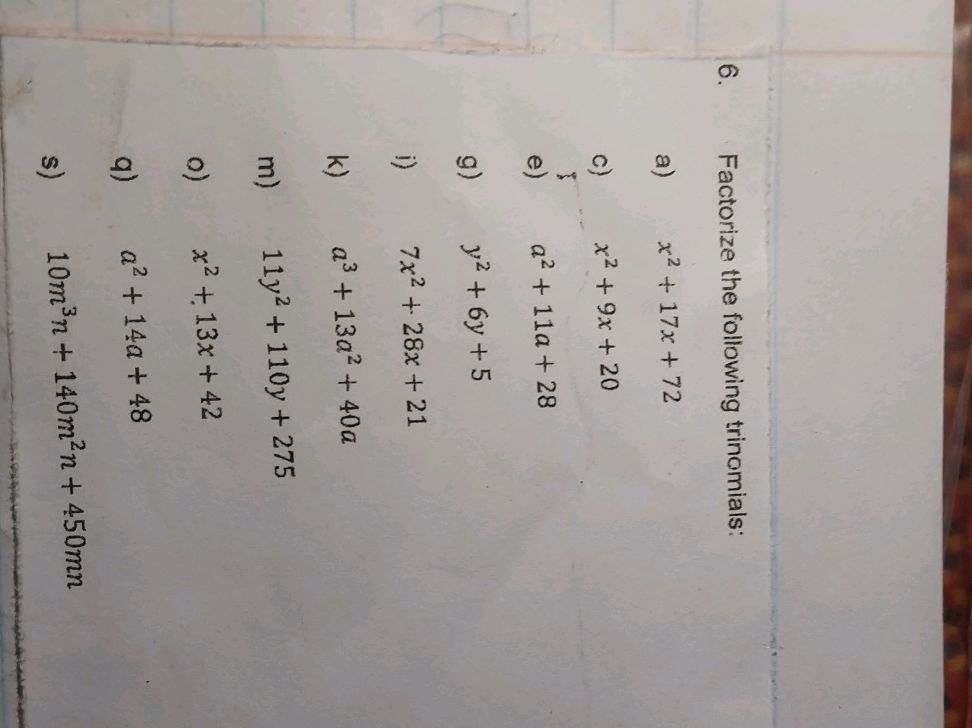 6. Factorize the following trinomials:
a) x² + 17x + 72
c) x² + 9x + 20
e) a² + 11a + 28
g) y² + 6y + 5
i) 7x² + 28x + 21
k) a³ + 13a² + 40a
m) 11y² + 110y + 275
o) x² + 13x + 42
q) a² + 14a + 48
s) 10m³n + 140m²n + 450mn